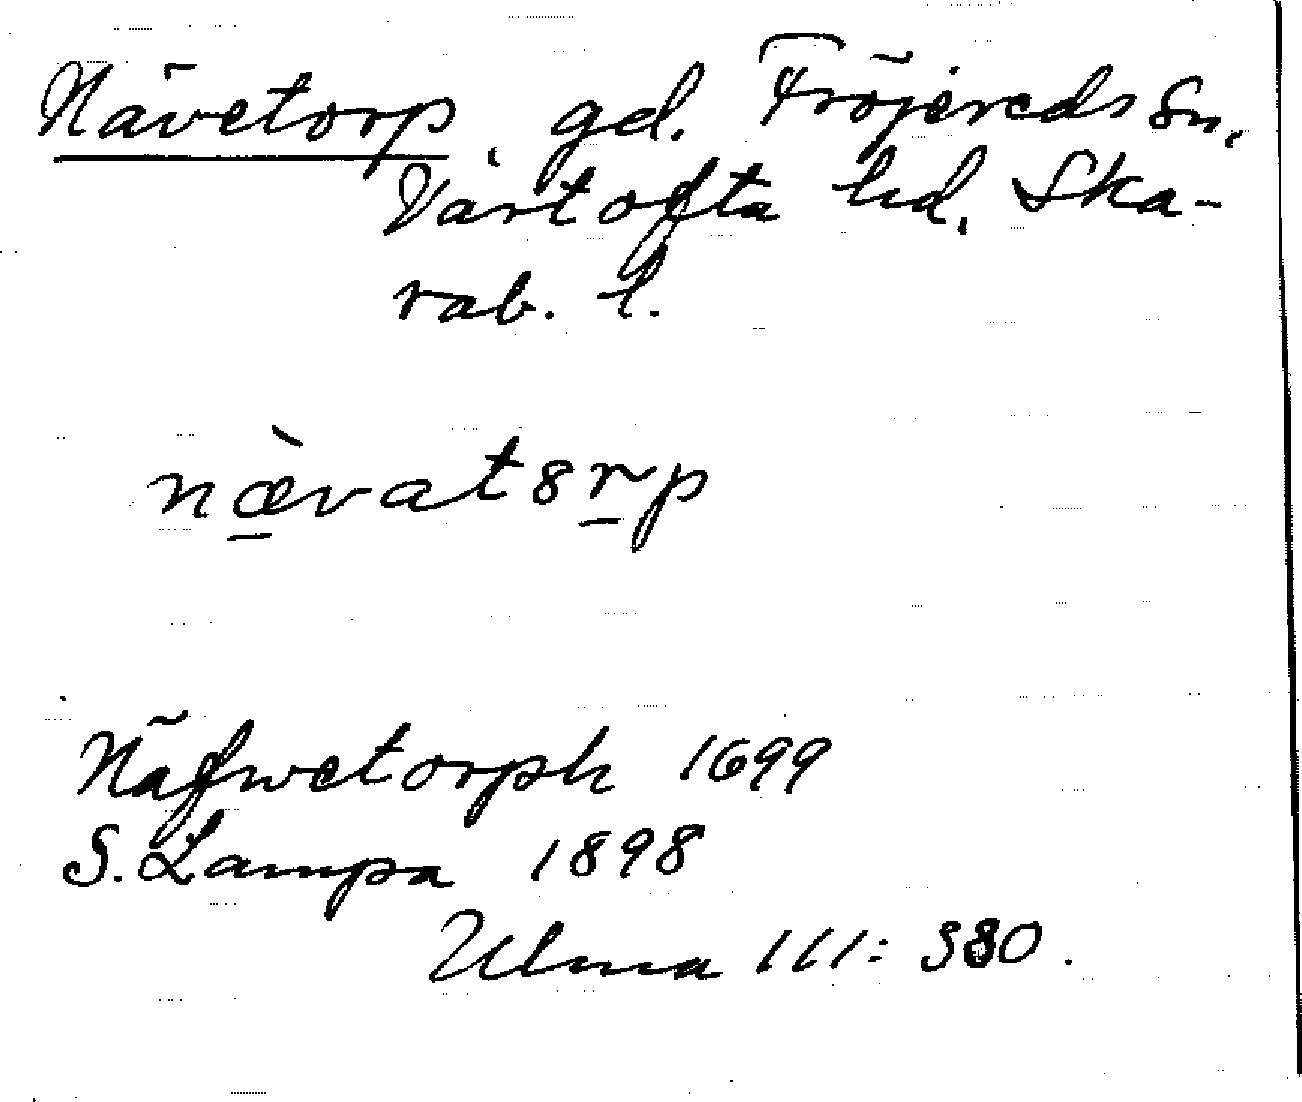 Nävetorp, gd. Fröjereds sn,
Vartofta hd, Ska-
rab. l.
næ̀vat8rp
Näfwetorph 1699
S. Lampa 1898
Ulma 111: 380.